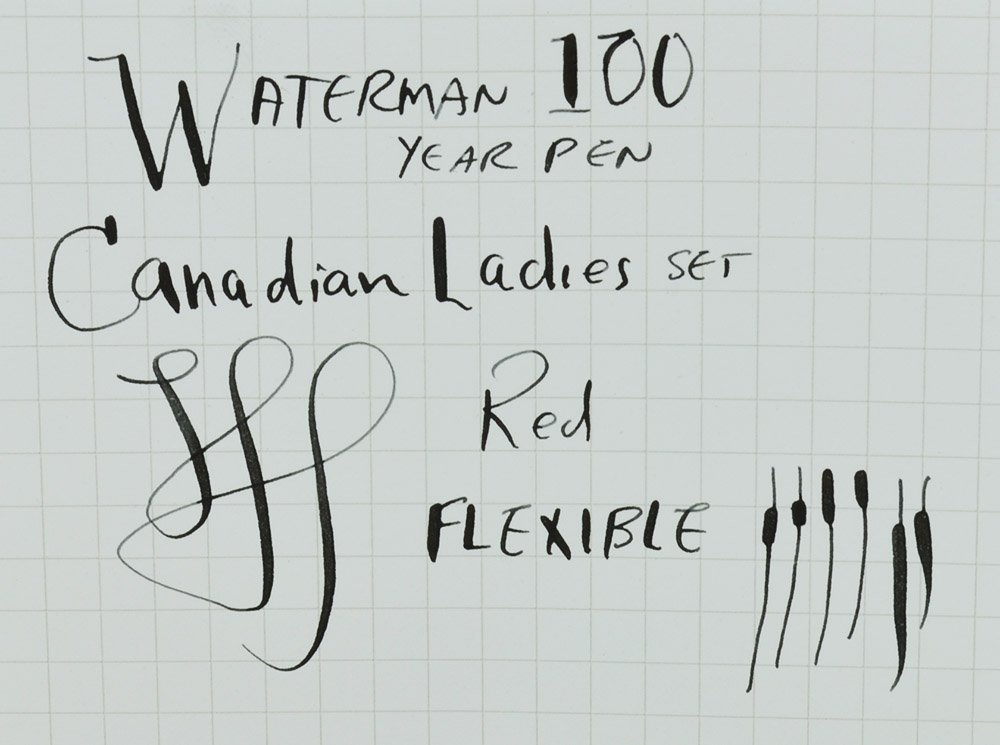 WATERMAN 100
YEAR PEN
Canadian Ladies SET
Red
FLEXIBLE